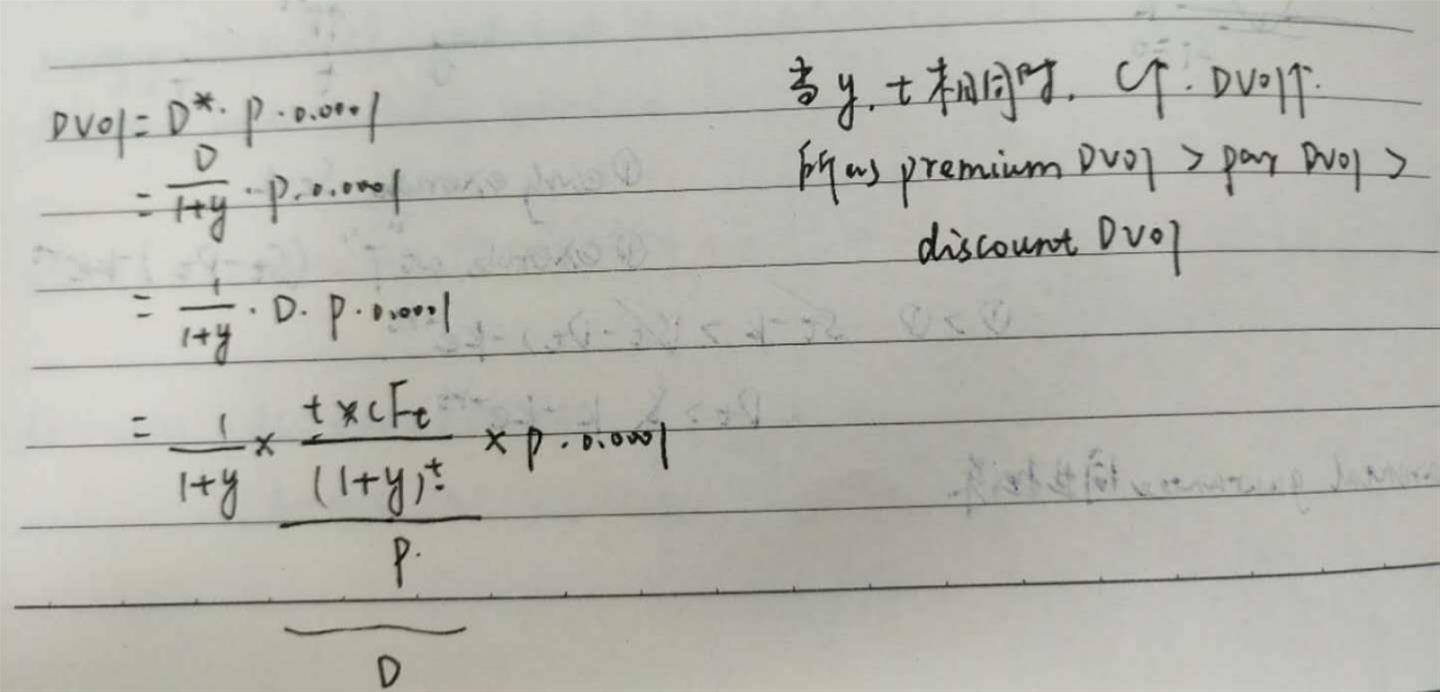 DV01 = D* · P · 0.0001
= D/(1+y) · P · 0.0001
= 1/(1+y) · D · P · 0.0001
= 1/(1+y) × ((t × CFt)/(1+y)^t)/P × P · 0.0001
D
当 y, t 相同时, C↑. DV01↑.
所以 premium DV01 > par DV01 >
discount DV01